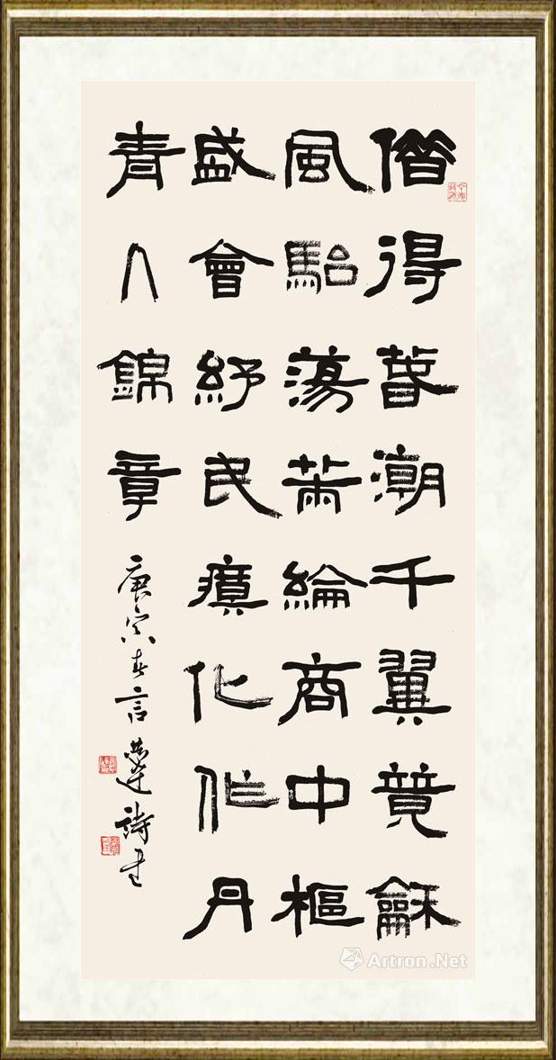 借得春潮千翼競龢
風駘蕩綸商中樞
盛會紓民瘼化作丹
青入錦章
庚寅春言恭達詩書
Artron.Net